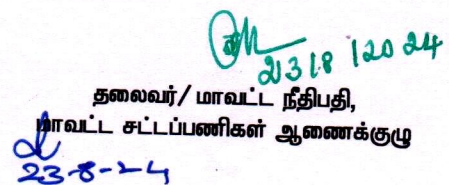 23/8/2024
தலைவர்/ மாவட்ட நீதிபதி,
மாவட்ட சட்டப்பணிகள் ஆணைக்குழு
23-8-24